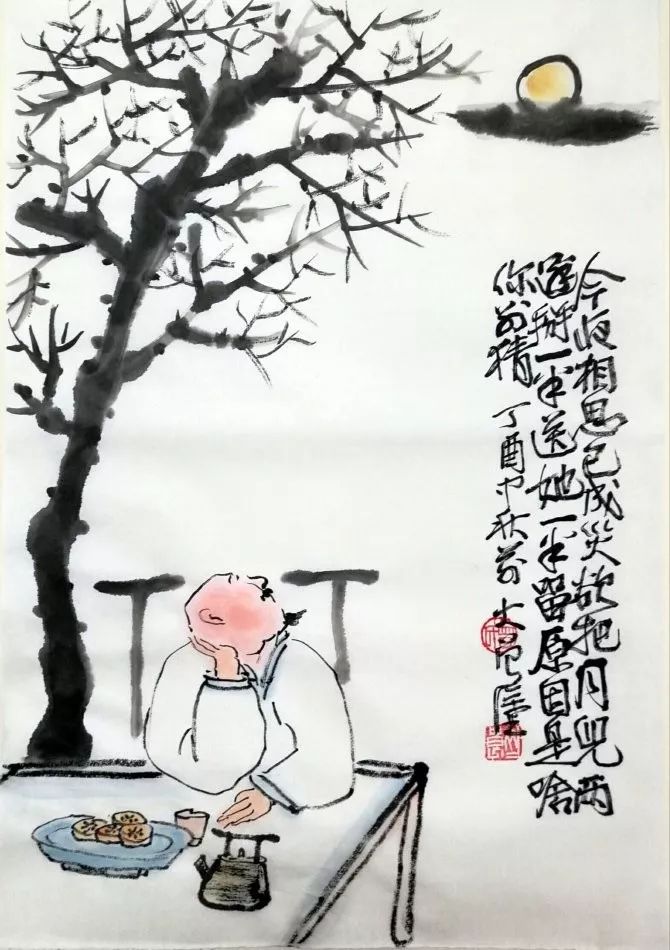 今夜相思已成災欲把月兒两
邊掰一半送她一半留原因是啥
你别猜 丁酉中秋前